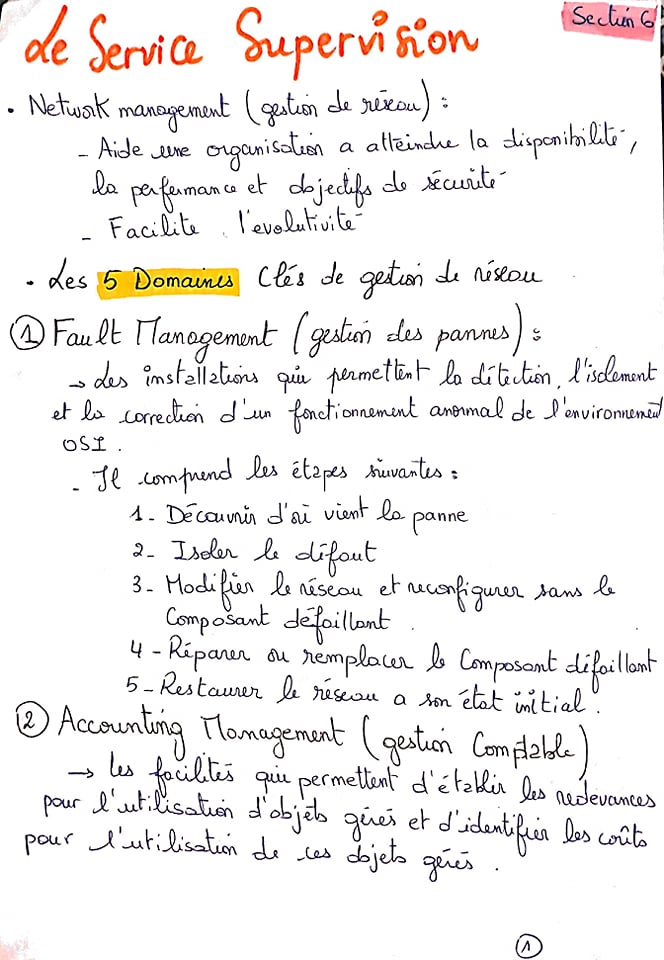 Section 6
Le Service Supervision
• Network management (gestion de réseau) :
- Aide une organisation a atteindre la disponibilité,
la performance et objectifs de sécurité
- Facilite l'evolutivité
• Les 5 Domaines Clés de gestion de réseau
① Fault Management (gestion des pannes) :
→ des installations qui permettent la détection, l'isolement
et la correction d'un fonctionnement anormal de l'environnement
OSI.
- Il comprend les étapes suivantes :
1 - Découvrir d'où vient la panne
2 - Isoler le défaut
3 - Modifier le réseau et reconfigurer sans le
Composant défaillant.
4 - Réparer ou remplacer le Composant défaillant
5 - Restaurer le réseau a son état initial.
② Accounting Management (gestion Comptable)
→ les facilités qui permettent d'établir les redevances
pour l'utilisation d'objets gérés et d'identifier les coûts
pour l'utilisation de ces objets gérés.
①